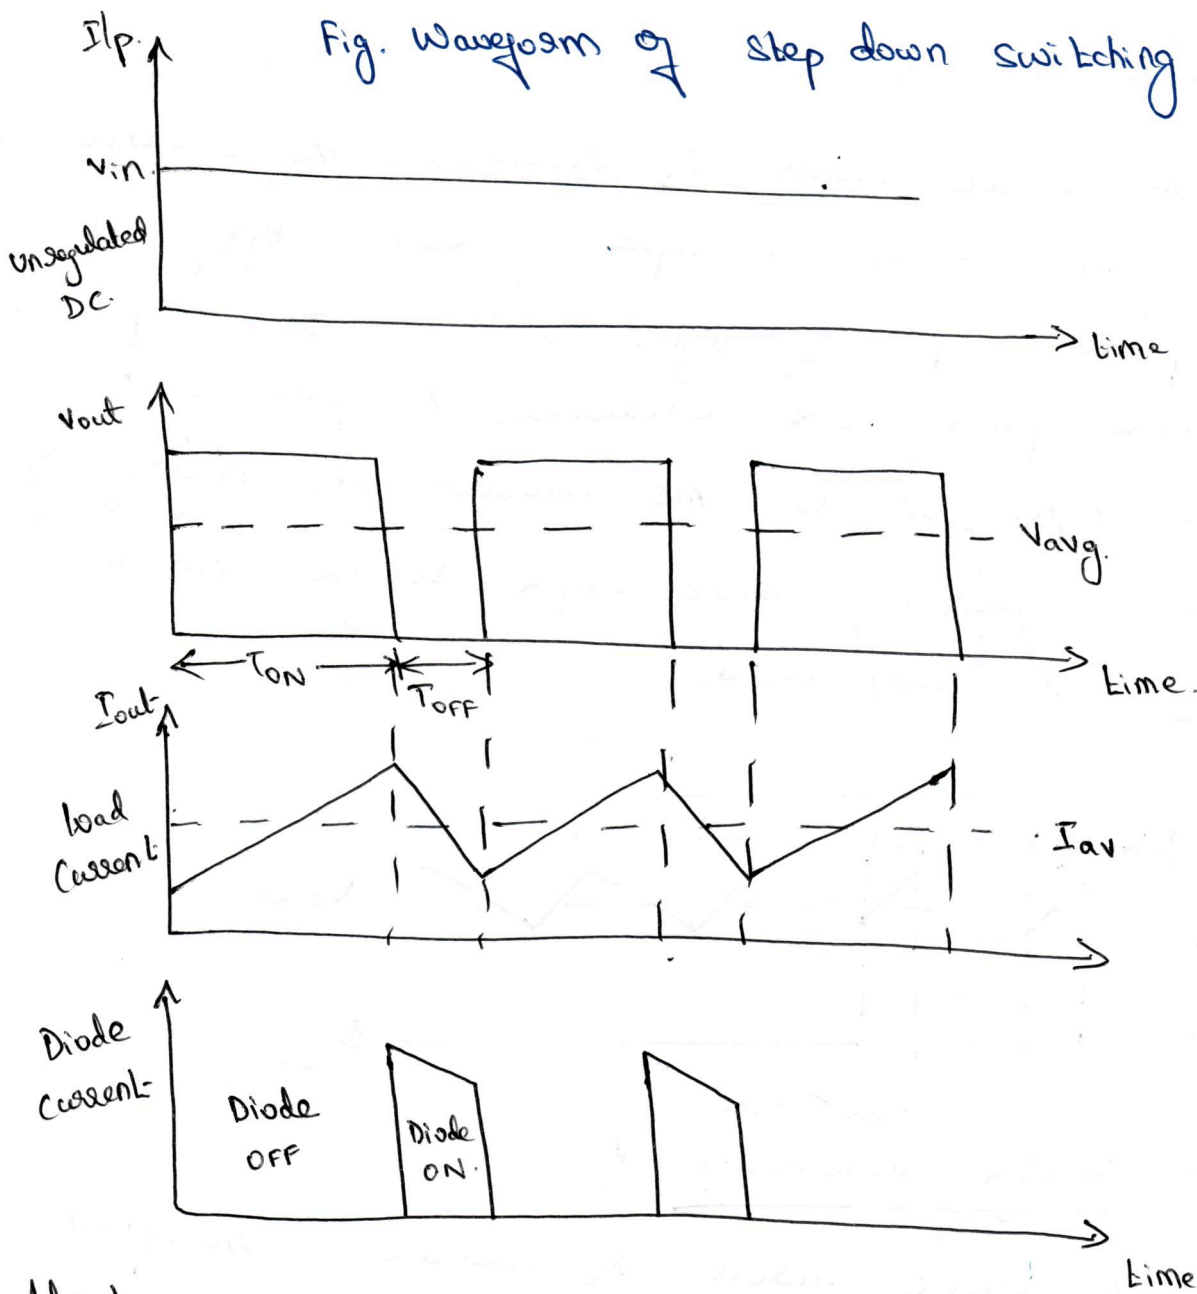 I/p.
Fig. Waveform of step down switching
Vin.
unregulated
DC.
time
Vout
Vavg.
TON
TOFF
time.
Iout
load
Current
Iav
Diode
Current
Diode
OFF
Diode
ON.
time